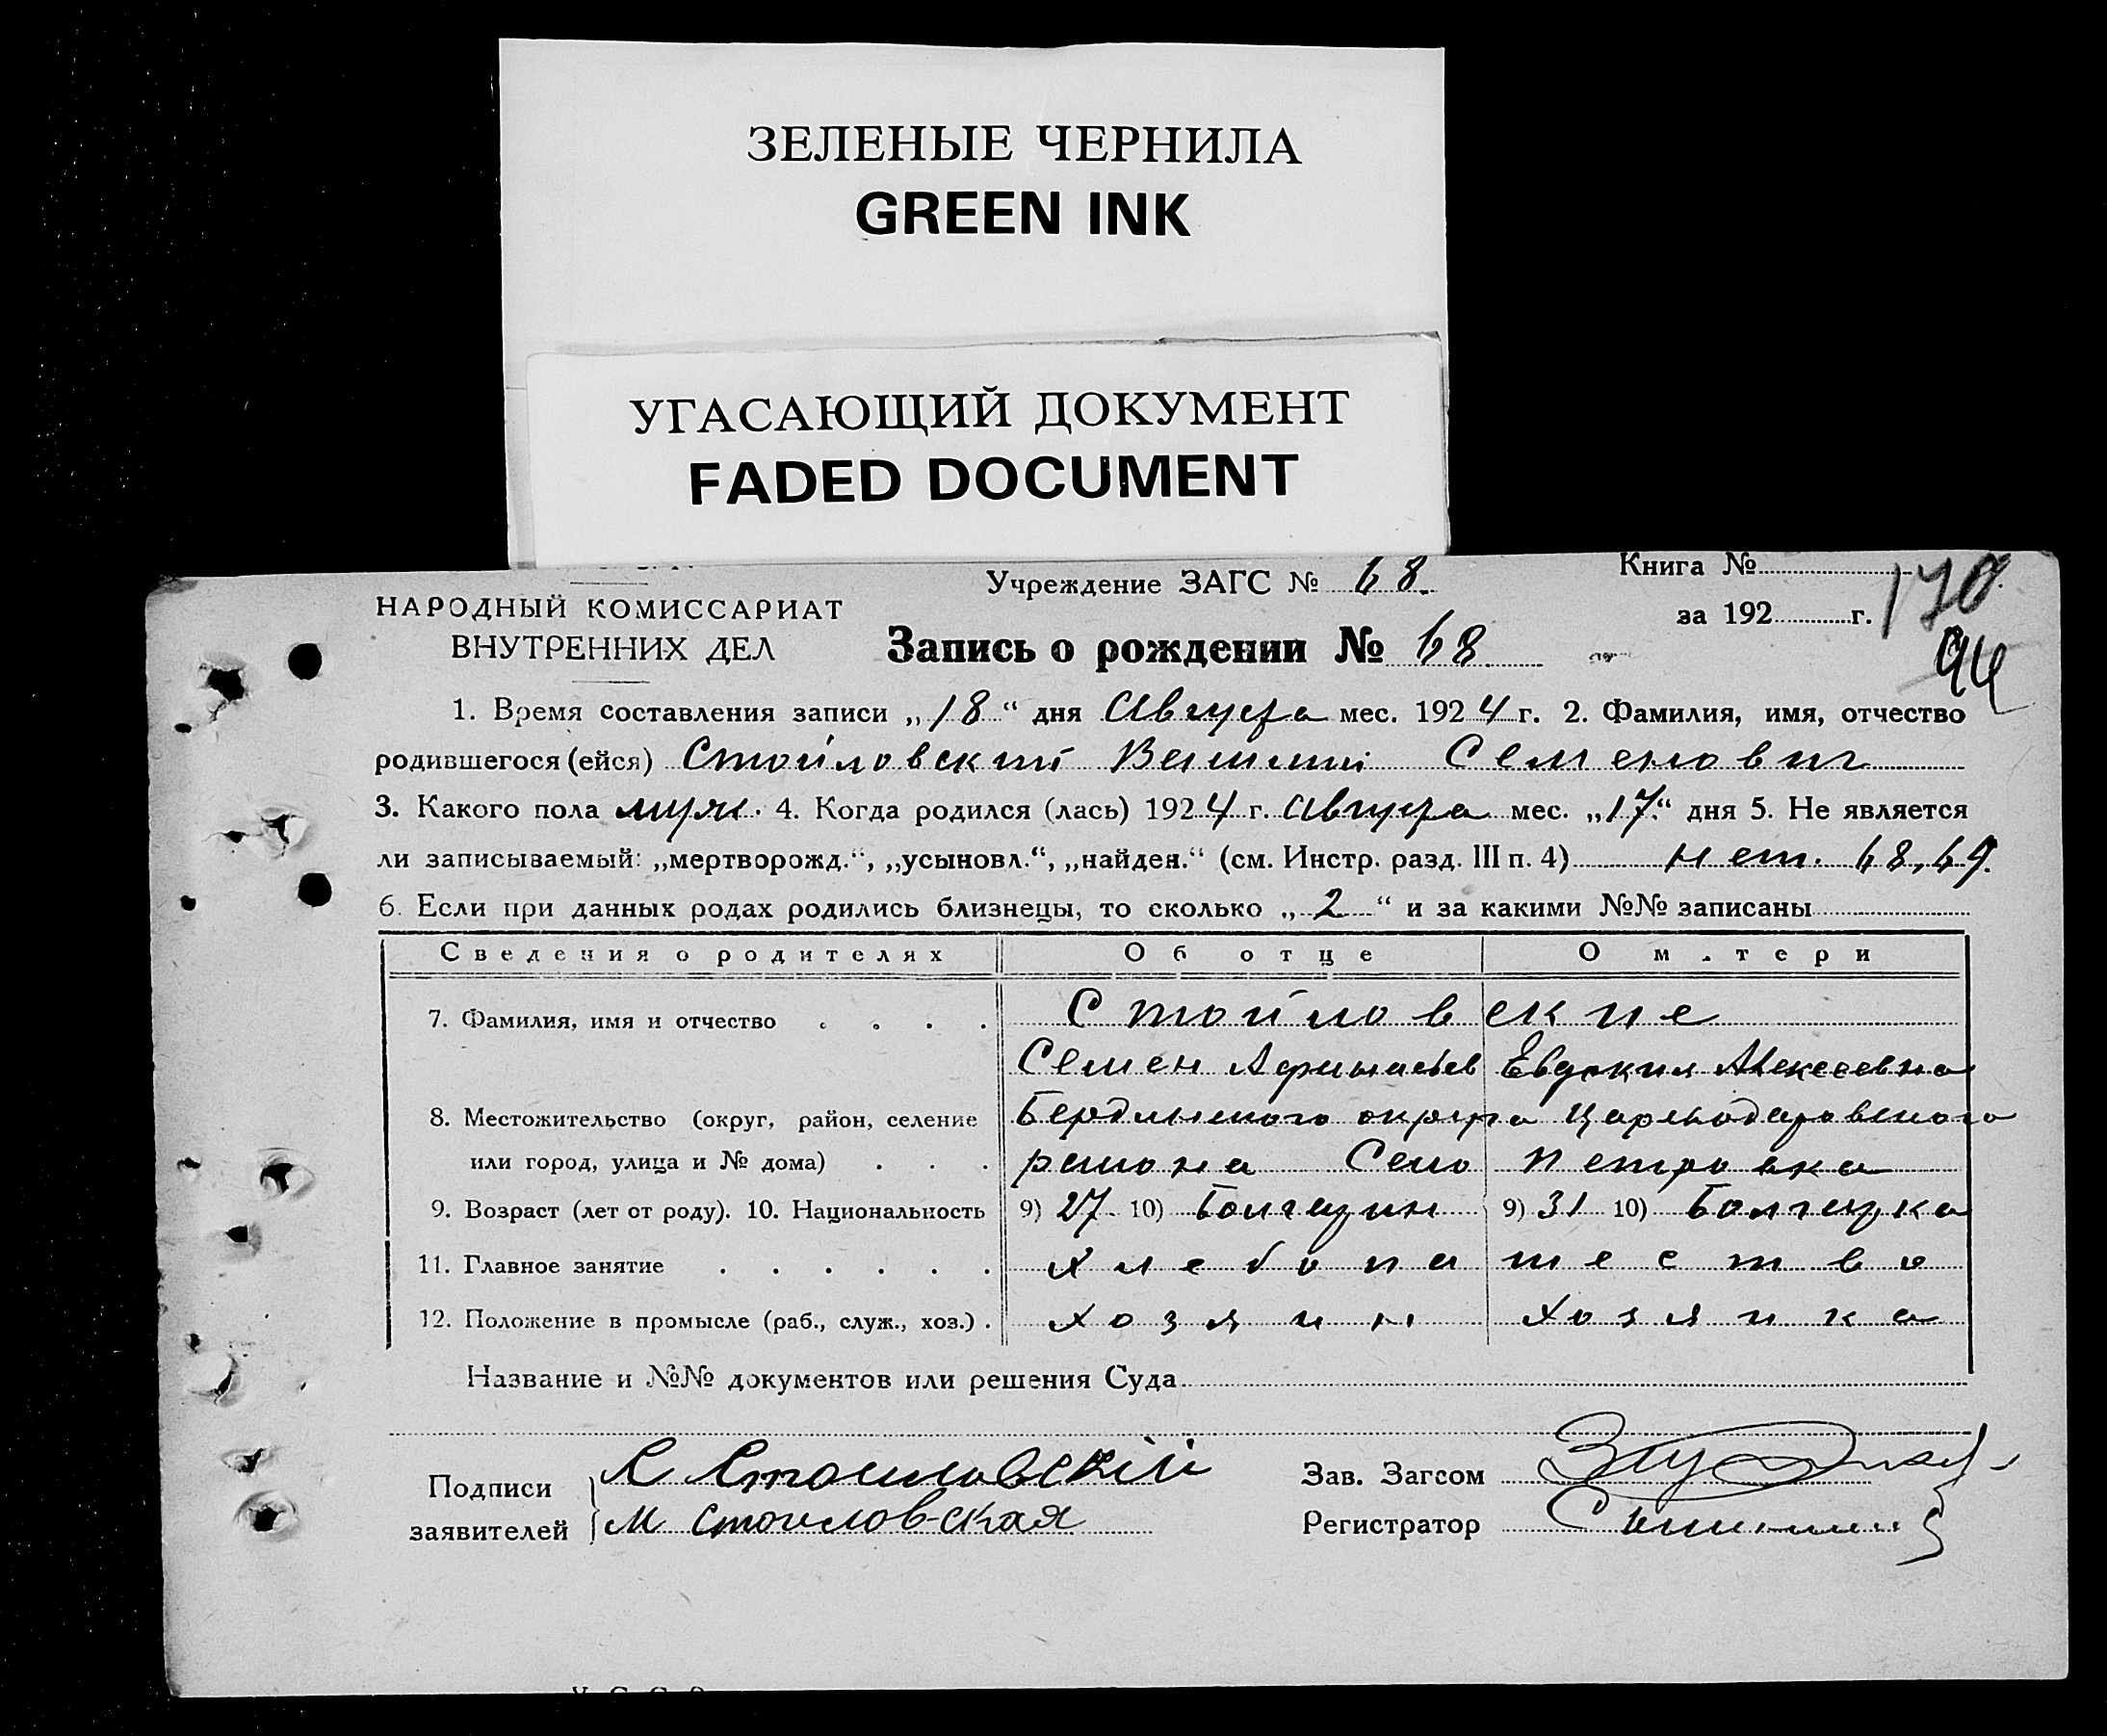 ЗЕЛЕНЫЕ ЧЕРНИЛА
GREEN INK
УГАСАЮЩИЙ ДОКУМЕНТ
FADED DOCUMENT
Учреждение ЗАГС № 68. Книга №
НАРОДНЫЙ КОМИССАРИАТ
ВНУТРЕННИХ ДЕЛ
за 192 г. 170
Запись о рождении № 68
94
1. Время составления записи „18“ дня Августа мес. 1924 г. 2. Фамилия, имя, отчество
родившегося (ейся) Стойловский Семенович
3. Какого пола муж. 4. Когда родился (лась) 1924 г. Августа мес. „17.“ дня 5. Не является
ли записываемый: „мертворожд.“, „усыновл.“, „найден.“ (см. Инстр. разд. III п. 4) нет. 68, 69.
6. Если при данных родах родились близнецы, то сколько „2“ и за какими №№ записаны
Сведения о родителях Об отце О матери
7. Фамилия, имя и отчество . . . . Стойловские
Семен Афанасьев Евдокия Алексеевна
8. Местожительство (округ, район, селение Бердянского округа Царекодаровского
или город, улица и № дома) . . . района Село Петровка
9. Возраст (лет от роду). 10. Национальность 9) 27 10) Болгарин 9) 31 10) Болгарка
11. Главное занятие . . . . . . Хлебопашество
12. Положение в промысле (раб., служ., хоз.) . хозяин хозяйка
Название и №№ документов или решения Суда
Подписи С Стоиловский Зав. Загсом
заявителей М Стоиловская Регистратор